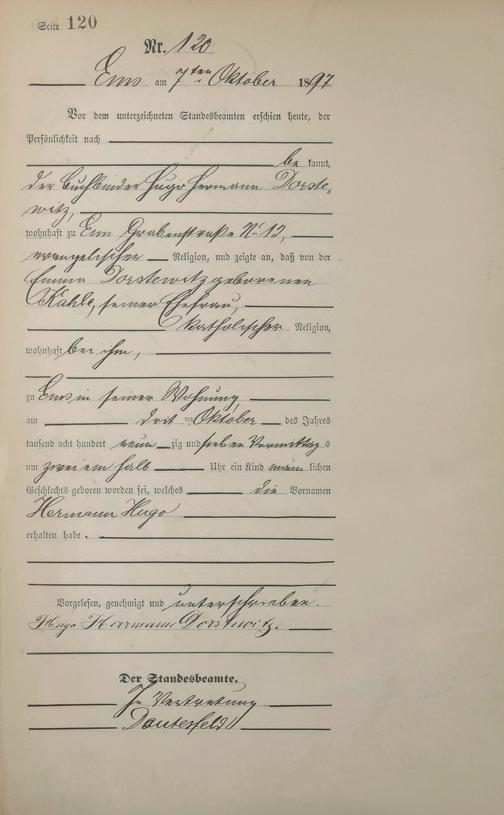 Seite 120
Nr. 120
Ems am 7ten Oktober 1897
Vor dem unterzeichneten Standesbeamten erschien heute, der
Persönlichkeit nach
be kannt,
der Buchbinder Hugo Hermann Dorste-
witz,
wohnhaft zu Ems Grabenstraße No 12,
evangelischer Religion, und zeigte an, daß von der
Emma Dorstewitz geborenen
Kahle, seiner Ehefrau,
katholischer Religion,
wohnhaft bei ihm,
zu Ems in seiner Wohnung,
am drit ten Oktober des Jahres
tausend acht hundert neun zig und sieben Vormittag s
um zwei ein halb Uhr ein Kind männ lichen
Geschlechts geboren worden sei, welches die Vornamen
Hermann Hugo
erhalten habe.
Vorgelesen, genehmigt und unterschrieben.
Hugo Hermann Dorstewitz.
Der Standesbeamte.
In Vertretung